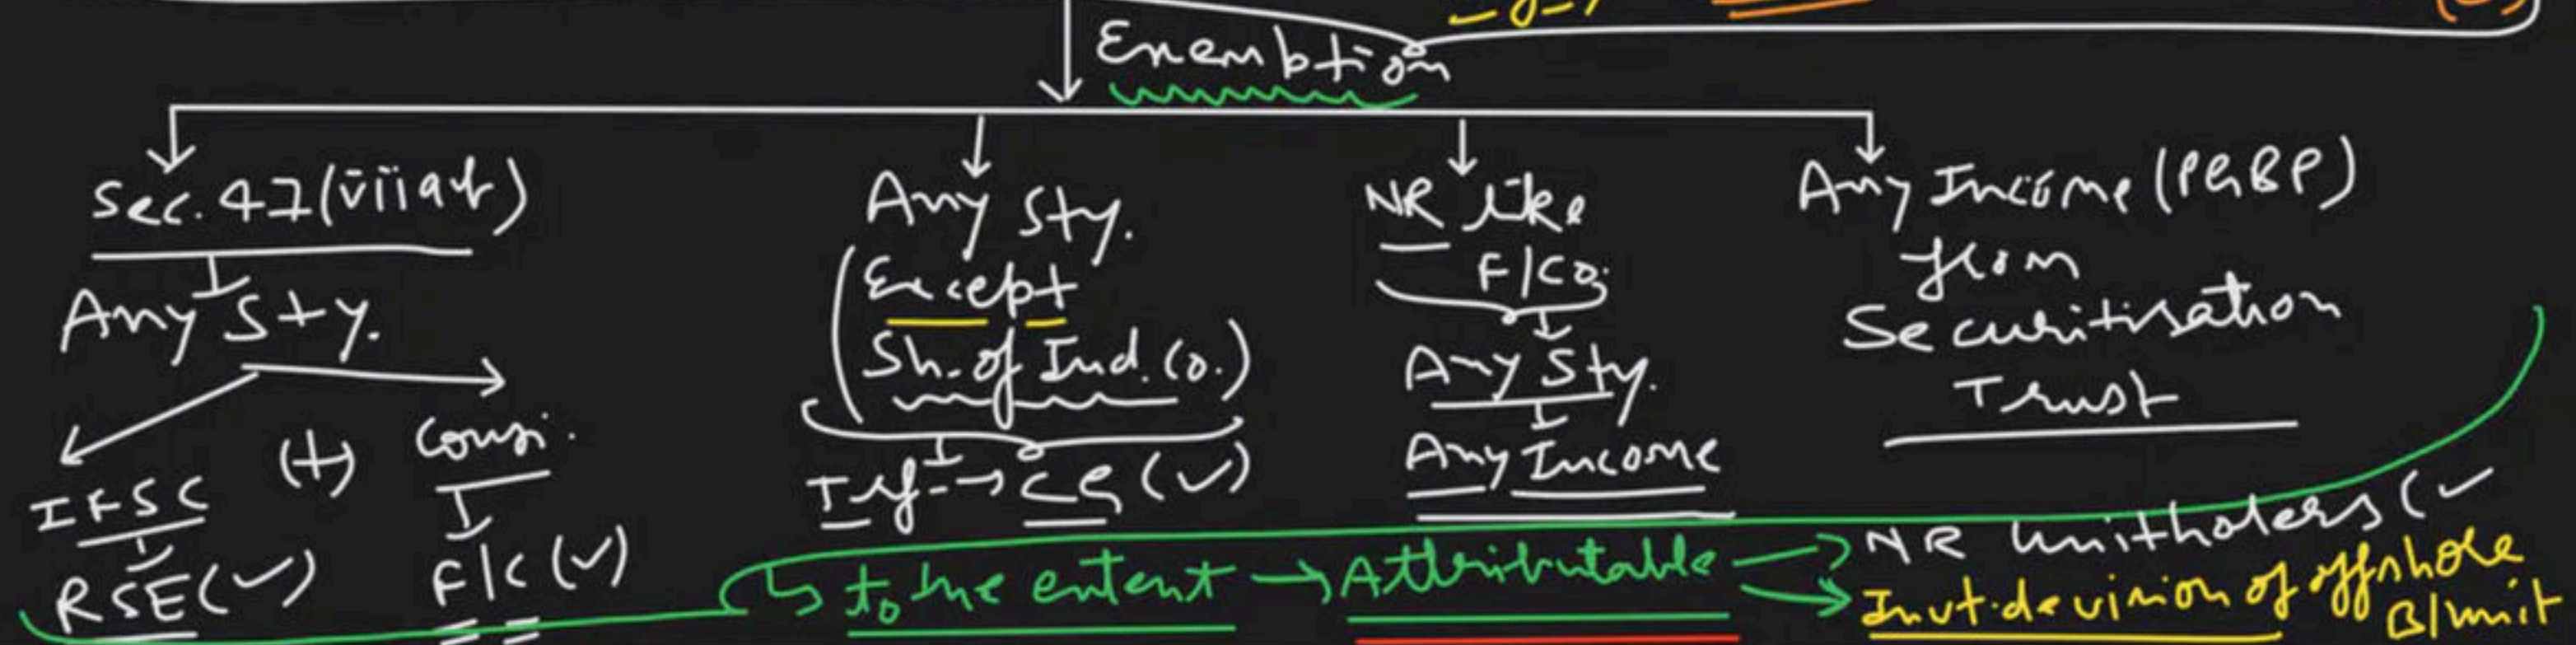 Exemption
Sec. 47(viiab)
Any Sty.
IFSC (+) Consi.
RSE (✓) F/C (✓)
Any Sty.
(Except
Sh. of Ind. Co.)
Trf. → CG (✓)
NR like
F/Co.
Any Sty.
Any Income
Any Income (PGBP)
from
Securitisation
Trust
↳ to the extent → Attributable → NR Unitholers (✓
→ Invt. devision of offshore
B/unit